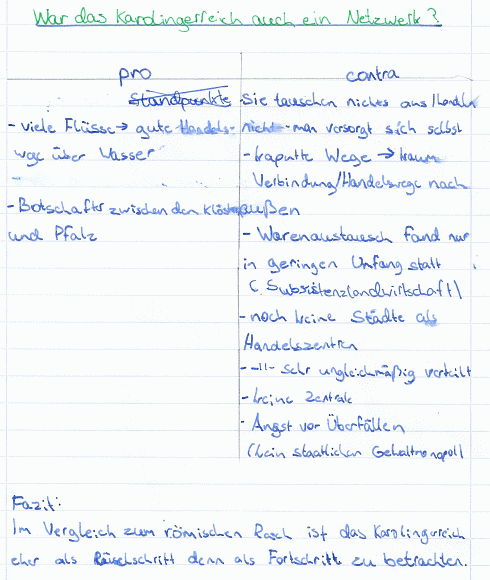 War das Karolingerreich auch ein Netzwerk?
pro
Standpunkte
- viele Flüsse → gute Handels-
wege über Wasser
-
- Botschafter zwischen den Klöstern
und Pfalz
contra
- Sie tauschen nichts aus/handeln
nicht - man versorgt sich selbst
- kaputte Wege → kaum
Verbindung/Handelswege nach
außen
- Warenaustausch fand nur
in geringen Umfang statt
(Subsistenzlandwirtschaft)
- noch keine Städte als
Handelszentren
- -"- sehr ungleichmäßig verteilt
- keine Zentrale
- Angst vor Überfällen
(kein staatlichen Gewaltmonopol)
Fazit:
Im Vergleich zum römischen Reich ist das Karolingerreich
eher als Rückschritt denn als Fortschritt zu betrachten.